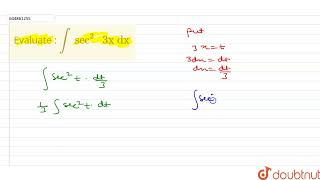 Evaluate : ∫ sec² 3x dx
∫ sec² t · dt/3
1/3 ∫ sec² t · dt
put
3x = t
3dx = dt
dx = dt/3
∫ sec²
doubtnut